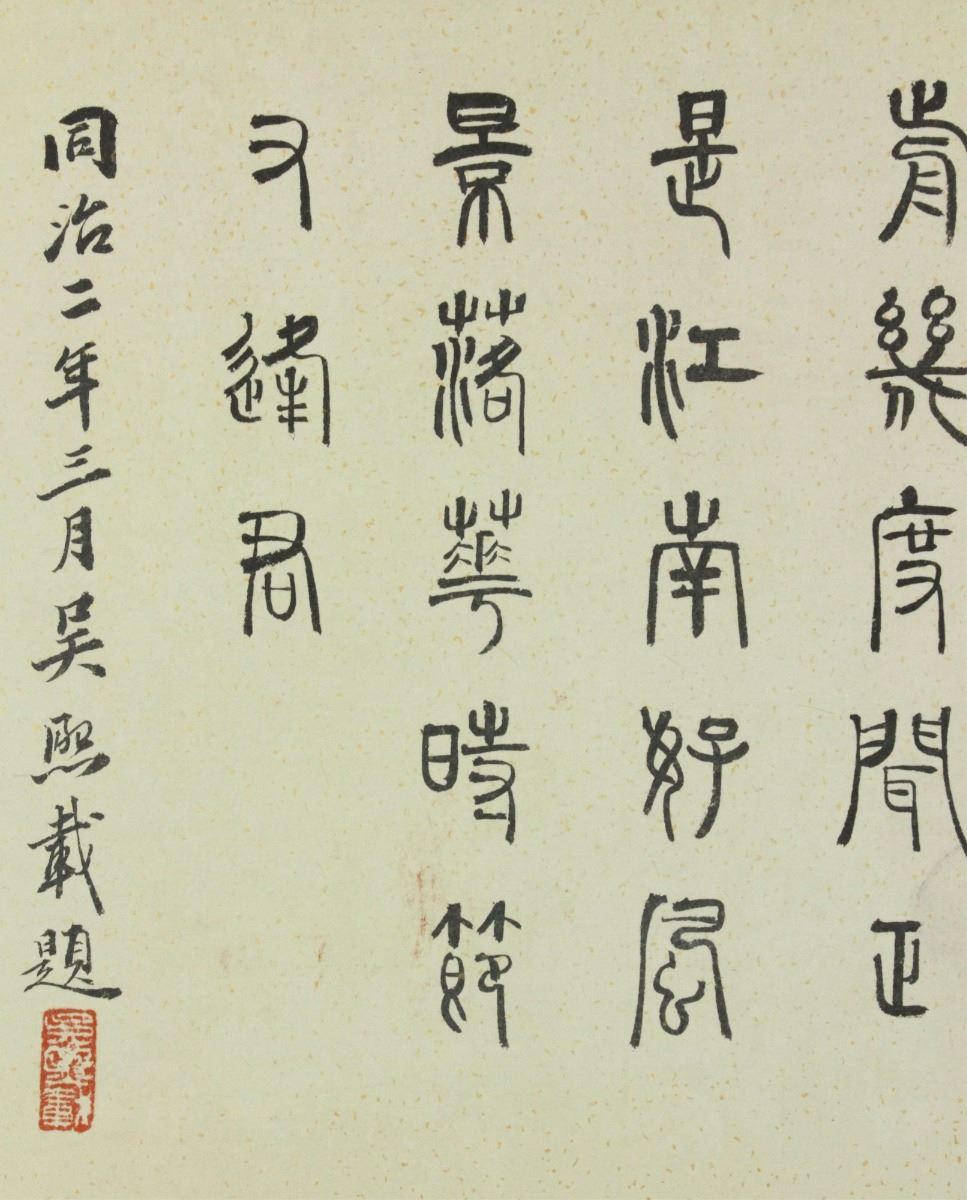 前幾度聞正
是江南好風
景落華時節
又逢君
同治二年三月吴熙載題
吳熙載